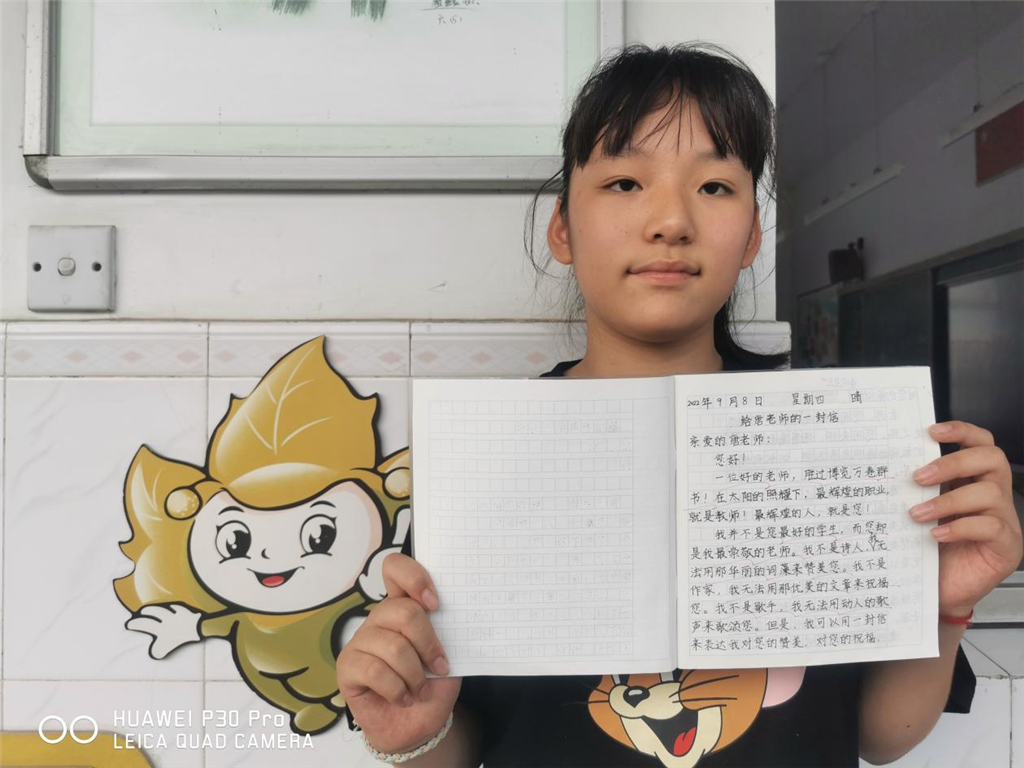 六(5)
2022年9月8日 星期四 晴
给唐老师的一封信
亲爱的唐老师：
您好！
一位好的老师，胜过博览万卷群
书！在太阳的照耀下，最辉煌的职业，
就是教师！最辉煌的人，就是您！
我并不是您最好的学生，而您却
是我最崇敬的老师。我不是诗人，我无
法用那华丽的词藻来赞美您。我不是
作家，我无法用那优美的文章来祝福
您。我不是歌手，我无法用动人的歌
声来歌颂您。但是，我可以用一封信
来表达我对您的赞美，对您的祝福，
HUAWEI P30 Pro
LEICA QUAD CAMERA